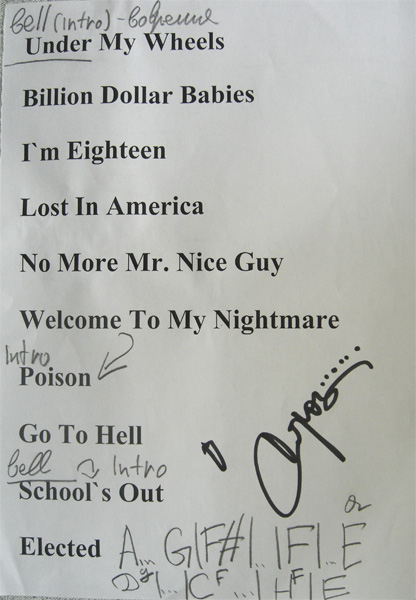 bell (intro) -
Under My Wheels
Billion Dollar Babies
I`m Eighteen
Lost In America
No More Mr. Nice Guy
Welcome To My Nightmare
Intro
Poison
Go To Hell
bell Intro
School`s Out
Elected A... G|F#|..|F|..E